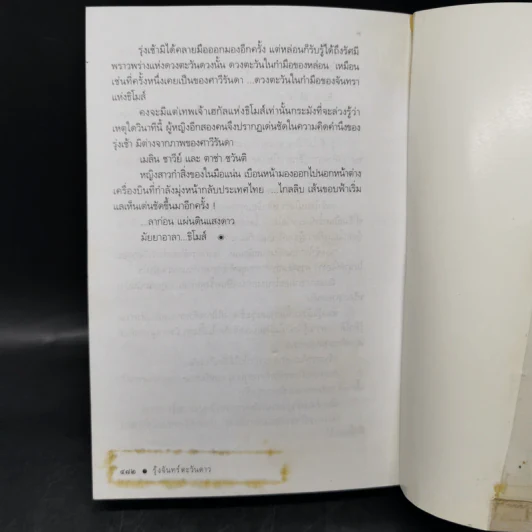 รุ่งเช้ามิได้คลายมือออกมองอีกครั้ง แต่หล่อนก็รับรู้ได้ถึงรัศมี
พราวพร่างแห่งดวงตะวันดวงนั้น ดวงตะวันในกำมือของหล่อน เหมือน
เช่นที่ครั้งหนึ่งเคยเป็นของศาวีรันดา ...ดวงตะวันในกำมือของจันทรา
แห่งชิโมส์
คงจะมีแต่เทพเจ้าเฮกัลแห่งชิโมส์เท่านั้นกระมังที่จะล่วงรู้ว่า
เหตุใดวินาทีนี้ ผู้หญิงอีกสองคนจึงปรากฏเด่นชัดในความคิดคำนึงของ
รุ่งเช้า มิต่างจากภาพของศาวีรันดา
เมลิน ชาวีย์ และ ตาซ่า ซวันตี
หญิงสาวกำสิ่งของในมือแน่น เบือนหน้ามองออกไปนอกหน้าต่าง
เครื่องบินที่กำลังมุ่งหน้ากลับประเทศไทย ...ไกลลิบ เส้นขอบฟ้าเริ่ม
แลเห็นเด่นชัดขึ้นมาอีกครั้ง !
...ลาก่อน แผ่นดินแสงดาว
มัยยาอาลา...ชิโมส์
๔๗๒ ● รุ้งจันทร์ตะวันดาว